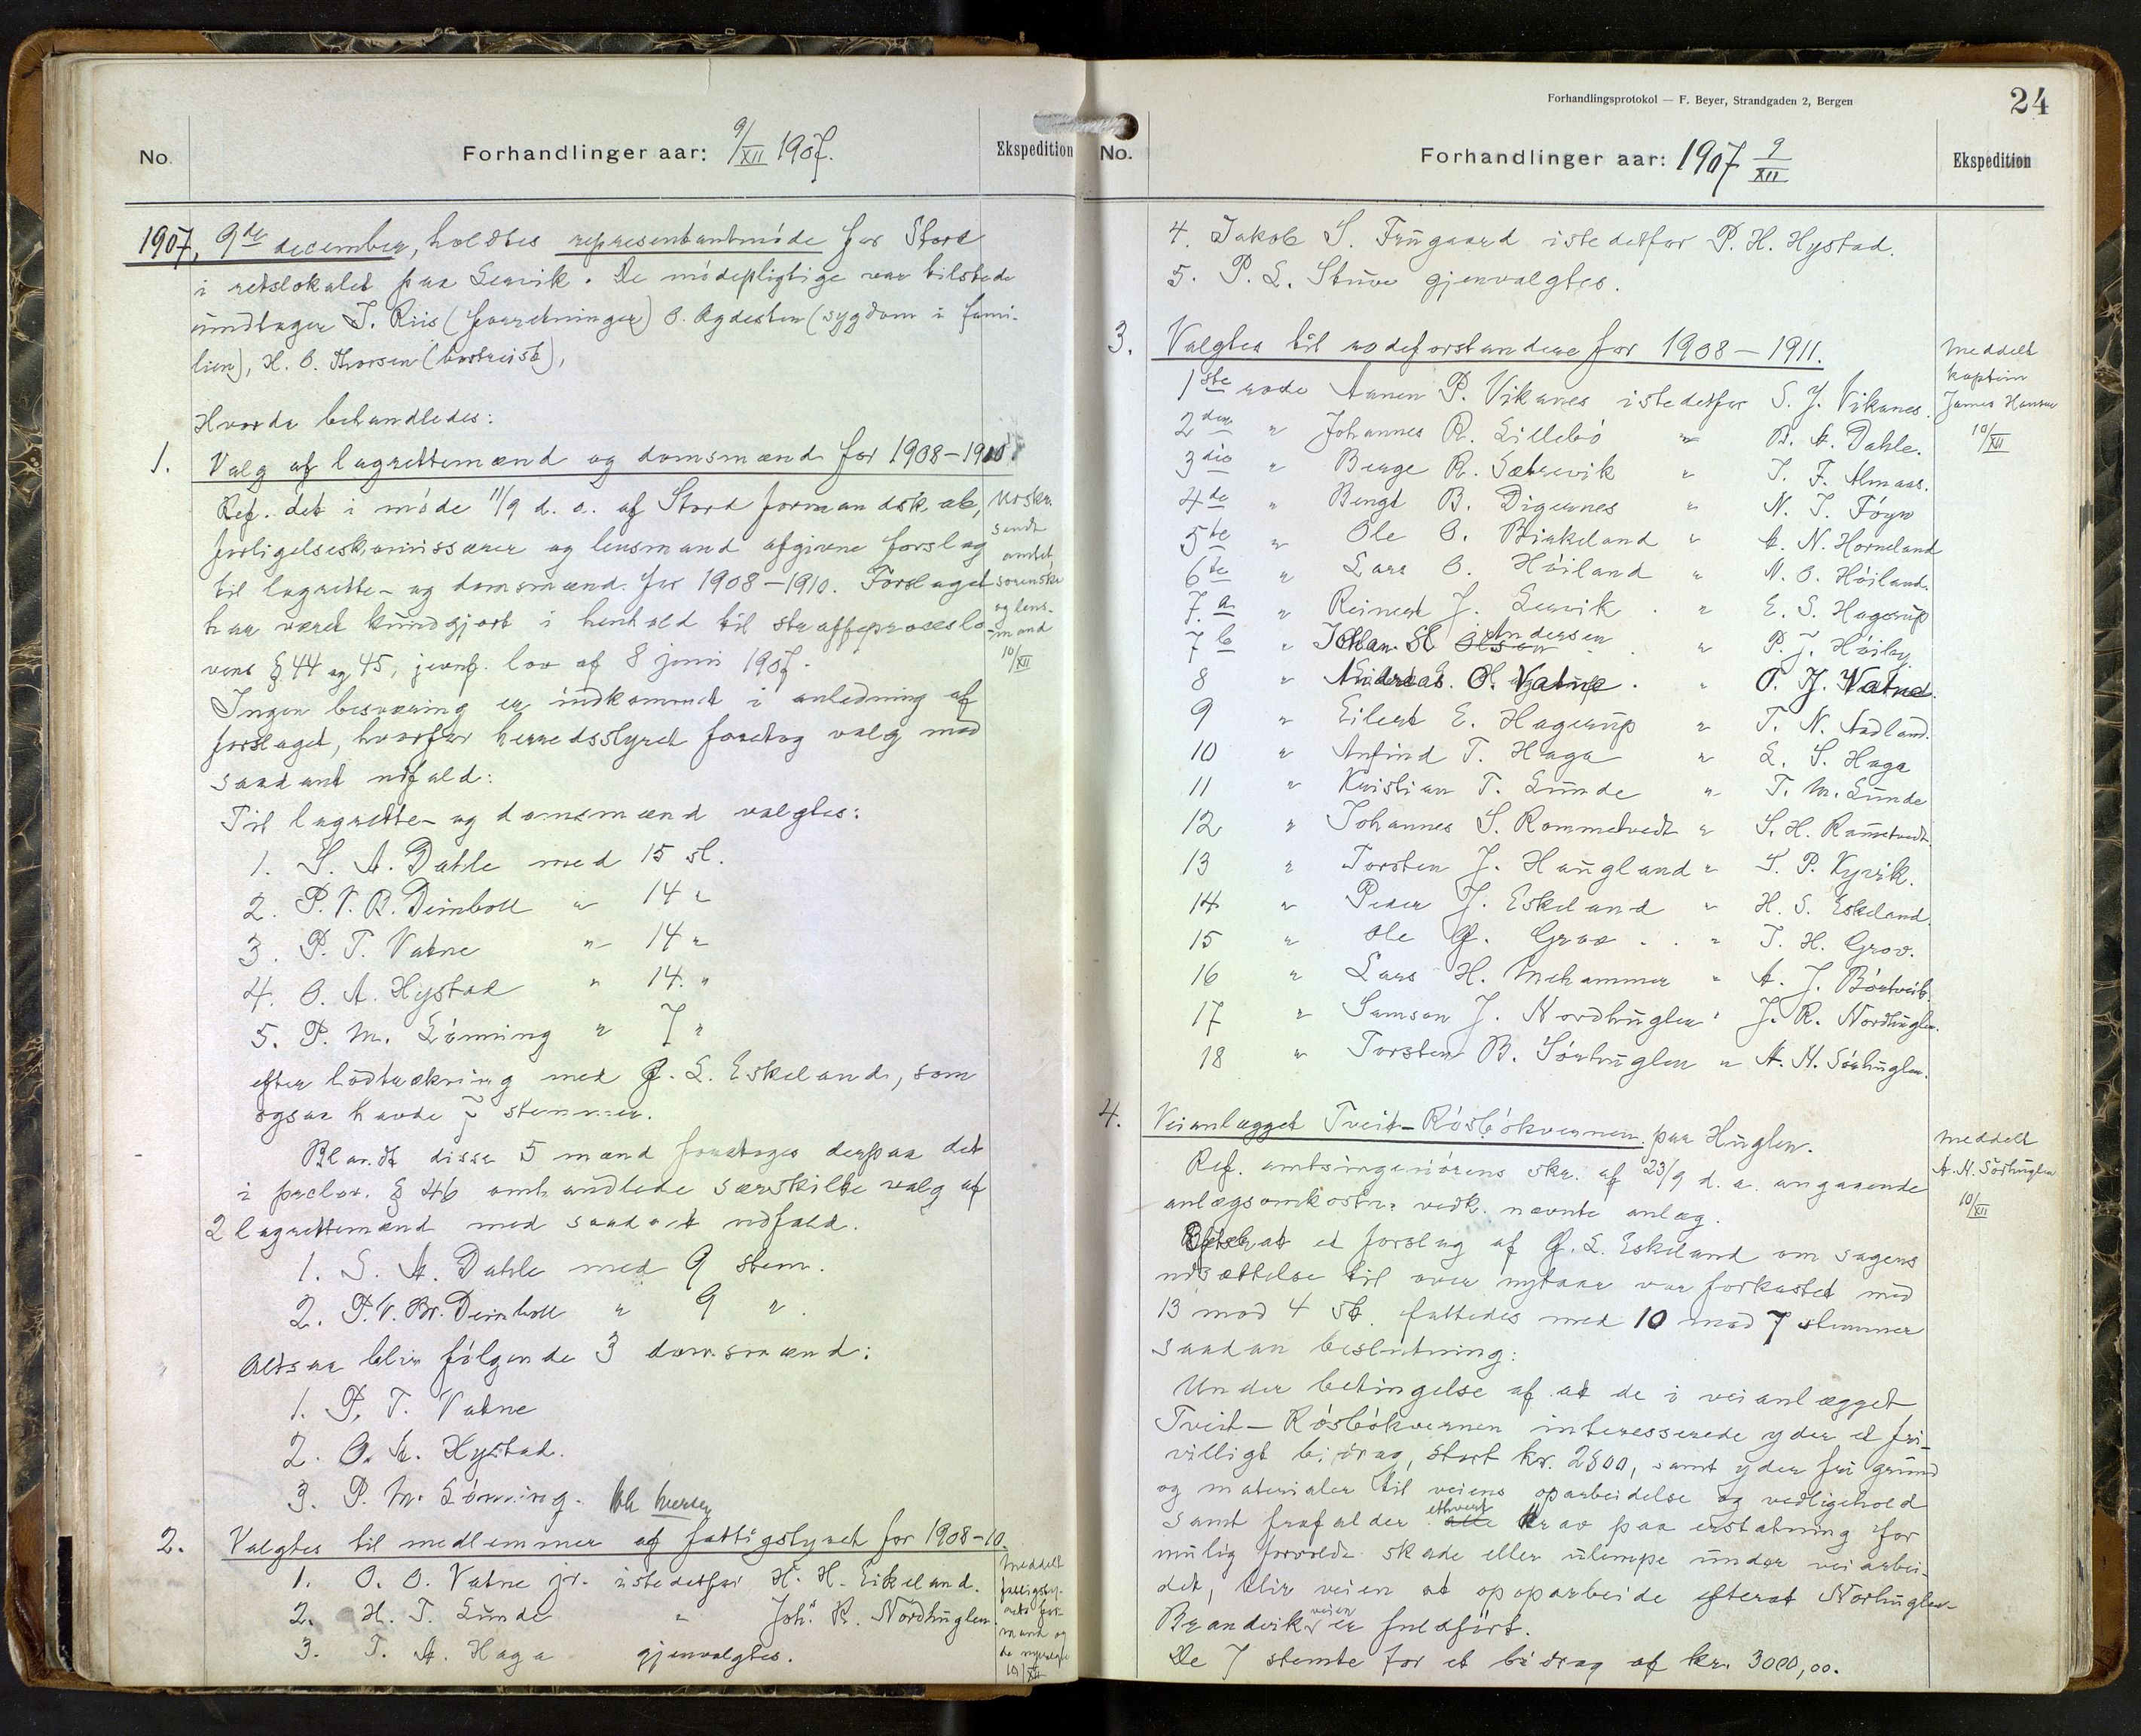 No.
Forhandlinger aar: 9/XII 1907.
Ekspedition
1907, 9de december, holdtes representantmøde for Stord
i retslokalet paa Lervik. De mødepligtige var tilstede
undtagen J. Riis (forretninger) O. Agdesten (sygdom i fami-
lien), H. O. Thorsen (bortreist),
Hvorda behandledes:
1. Valg af lagrettemænd og domsmænd for 1908-1910
Ref. det i møde 11/9 d. a. af Stord formandskab,
forligelseskomissærer og lensmand afgivne forslag
til lagrette- og domsmænd for 1908-1910. Forslaget
har været kundgjort i henhold til straffeproceslo
vens § 44 og 45, jevnf. lov af 8 juni 1907.
Ingen besværing er indkommet i anledning af
forslaget, hvorfor herredsstyret foretog valg med
saadant udfald:
Til lagrette- og domsmænd valgtes:
1. S. A. Dahle med 15 st.
2. P. V. B. Deinboll " 14 "
3. P. T. Vatne " 14 "
4. O. A. Hystad " 14 "
5. P. M. Lönning " 7 "
efter lodtrækning med G. L. Eskeland, som
ogsaa havde 7 stemmer.
Blandt disse 5 mænd foretoges derpaa det
i prclov. § 46 omhandlede særskilte valg af
2 lagrettemænd med saadant udfald.
1. S. A. Dahle med 9 stem.
2. P. V. Br. Deinboll " 9 ".
Altsaa blir følgende 3 domsmænd:
1. P. T. Vatne
2. O. A. Hystad.
3. P. M. Lönning.
Udskr.
sendt
amtet
sorenskr
og lens-
mand
10/XII
2. Valgtes til medlemmer af fattigstyret for 1908-10.
1. O. O. Vatne jr. istedetfor H. H. Eikeland.
2. H. T. Lunde " Johs. R. Nordhuglen
3. T. A. Haga gjenvalgtes.
Meddelt
fattigsty-
rets for-
mand og
de nyvalgte
10/XII
Forhandlingsprotokol — F. Beyer, Strandgaden 2, Bergen
24
No.
Forhandlinger aar: 1907 9/XII
Ekspedition
4. Jakob S. Frugaard istedetfor P. H. Hystad.
5. P. L. Stuve gjenvalgtes.
3. Valgtes til rodeforstandere for 1908-1911.
1ste rode Aanen P. Vikanes istedetfor S. J. Vikanes.
2den " Johannes R. Lillebø " B. A. Dahle.
3die " Berge R. Sætrevik " T. F. Almaas.
4de " Bengt B. Digernes " N. T. Föyn
5te " Ole O. Birkeland " A. N. Horneland
6te " Lars O. Höiland " N. O. Höiland.
7.a " Reinert J. Lervik . " E. S. Hagerup
7 b " Johan St. Olsen Andersen " P. J. Höiby
8 " Andreas O. Vatne . " O. J. Vatne.
9 " Eilert E. Hagerup " T. N. Aadland.
10 " Anfind T. Haga " L. S. Haga
11 " Kristian T. Lunde " T. M. Lunde
12 " Johannes S. Rommetvedt " S. H. Rommetvedt
13 " Torsten J. Haugland " S. P. Kyvik.
14 " Peder J. Eskeland " H. S. Eskeland
15 " Ole G. Grov . . " T. H. Grov.
16 " Lars H. Mehammer " A. J. Börtveit.
17 " Samson J. Nordhuglen " J. R. Nordhuglen.
18 " Torsten B. Sörhuglen " A. N. Sörhuglen.
Meddelt
kaptein
James Hansen
10/XII
4. Veianlægget Tveit-Rösbökvernen paa Huglen.
Ref. amtsingeniørens skr. af 23/9 d. a. angaaende
anlægsomkostn. vedk. nævnte anlæg.
Efterat et forslag af G. L. Eskeland om sagens
udsættelse til over nytaar var forkastet med
13 mod 4 st. fattedes med 10 mod 7 stemmer
saadan beslutning:
Under betingelse af at de i veianlægget
Tveit-Rösbökvernen interesserede yder et fri-
villigt bidrag, stort kr. 2800, samt yder fri grund
og materialer til veiens oparbeidelse og vedligehold
samt frafalder alle ethvert krav paa erstatning for
mulig forvoldt skade eller ulempe under veiarbei-
det, blir veien at opoparbeide efterat Nordhuglen-
Brandvik veien er fuldført.
De 7 stemte for et bidrag af kr. 3000,00.
Meddelt
A. N. Sörhuglen
10/XII